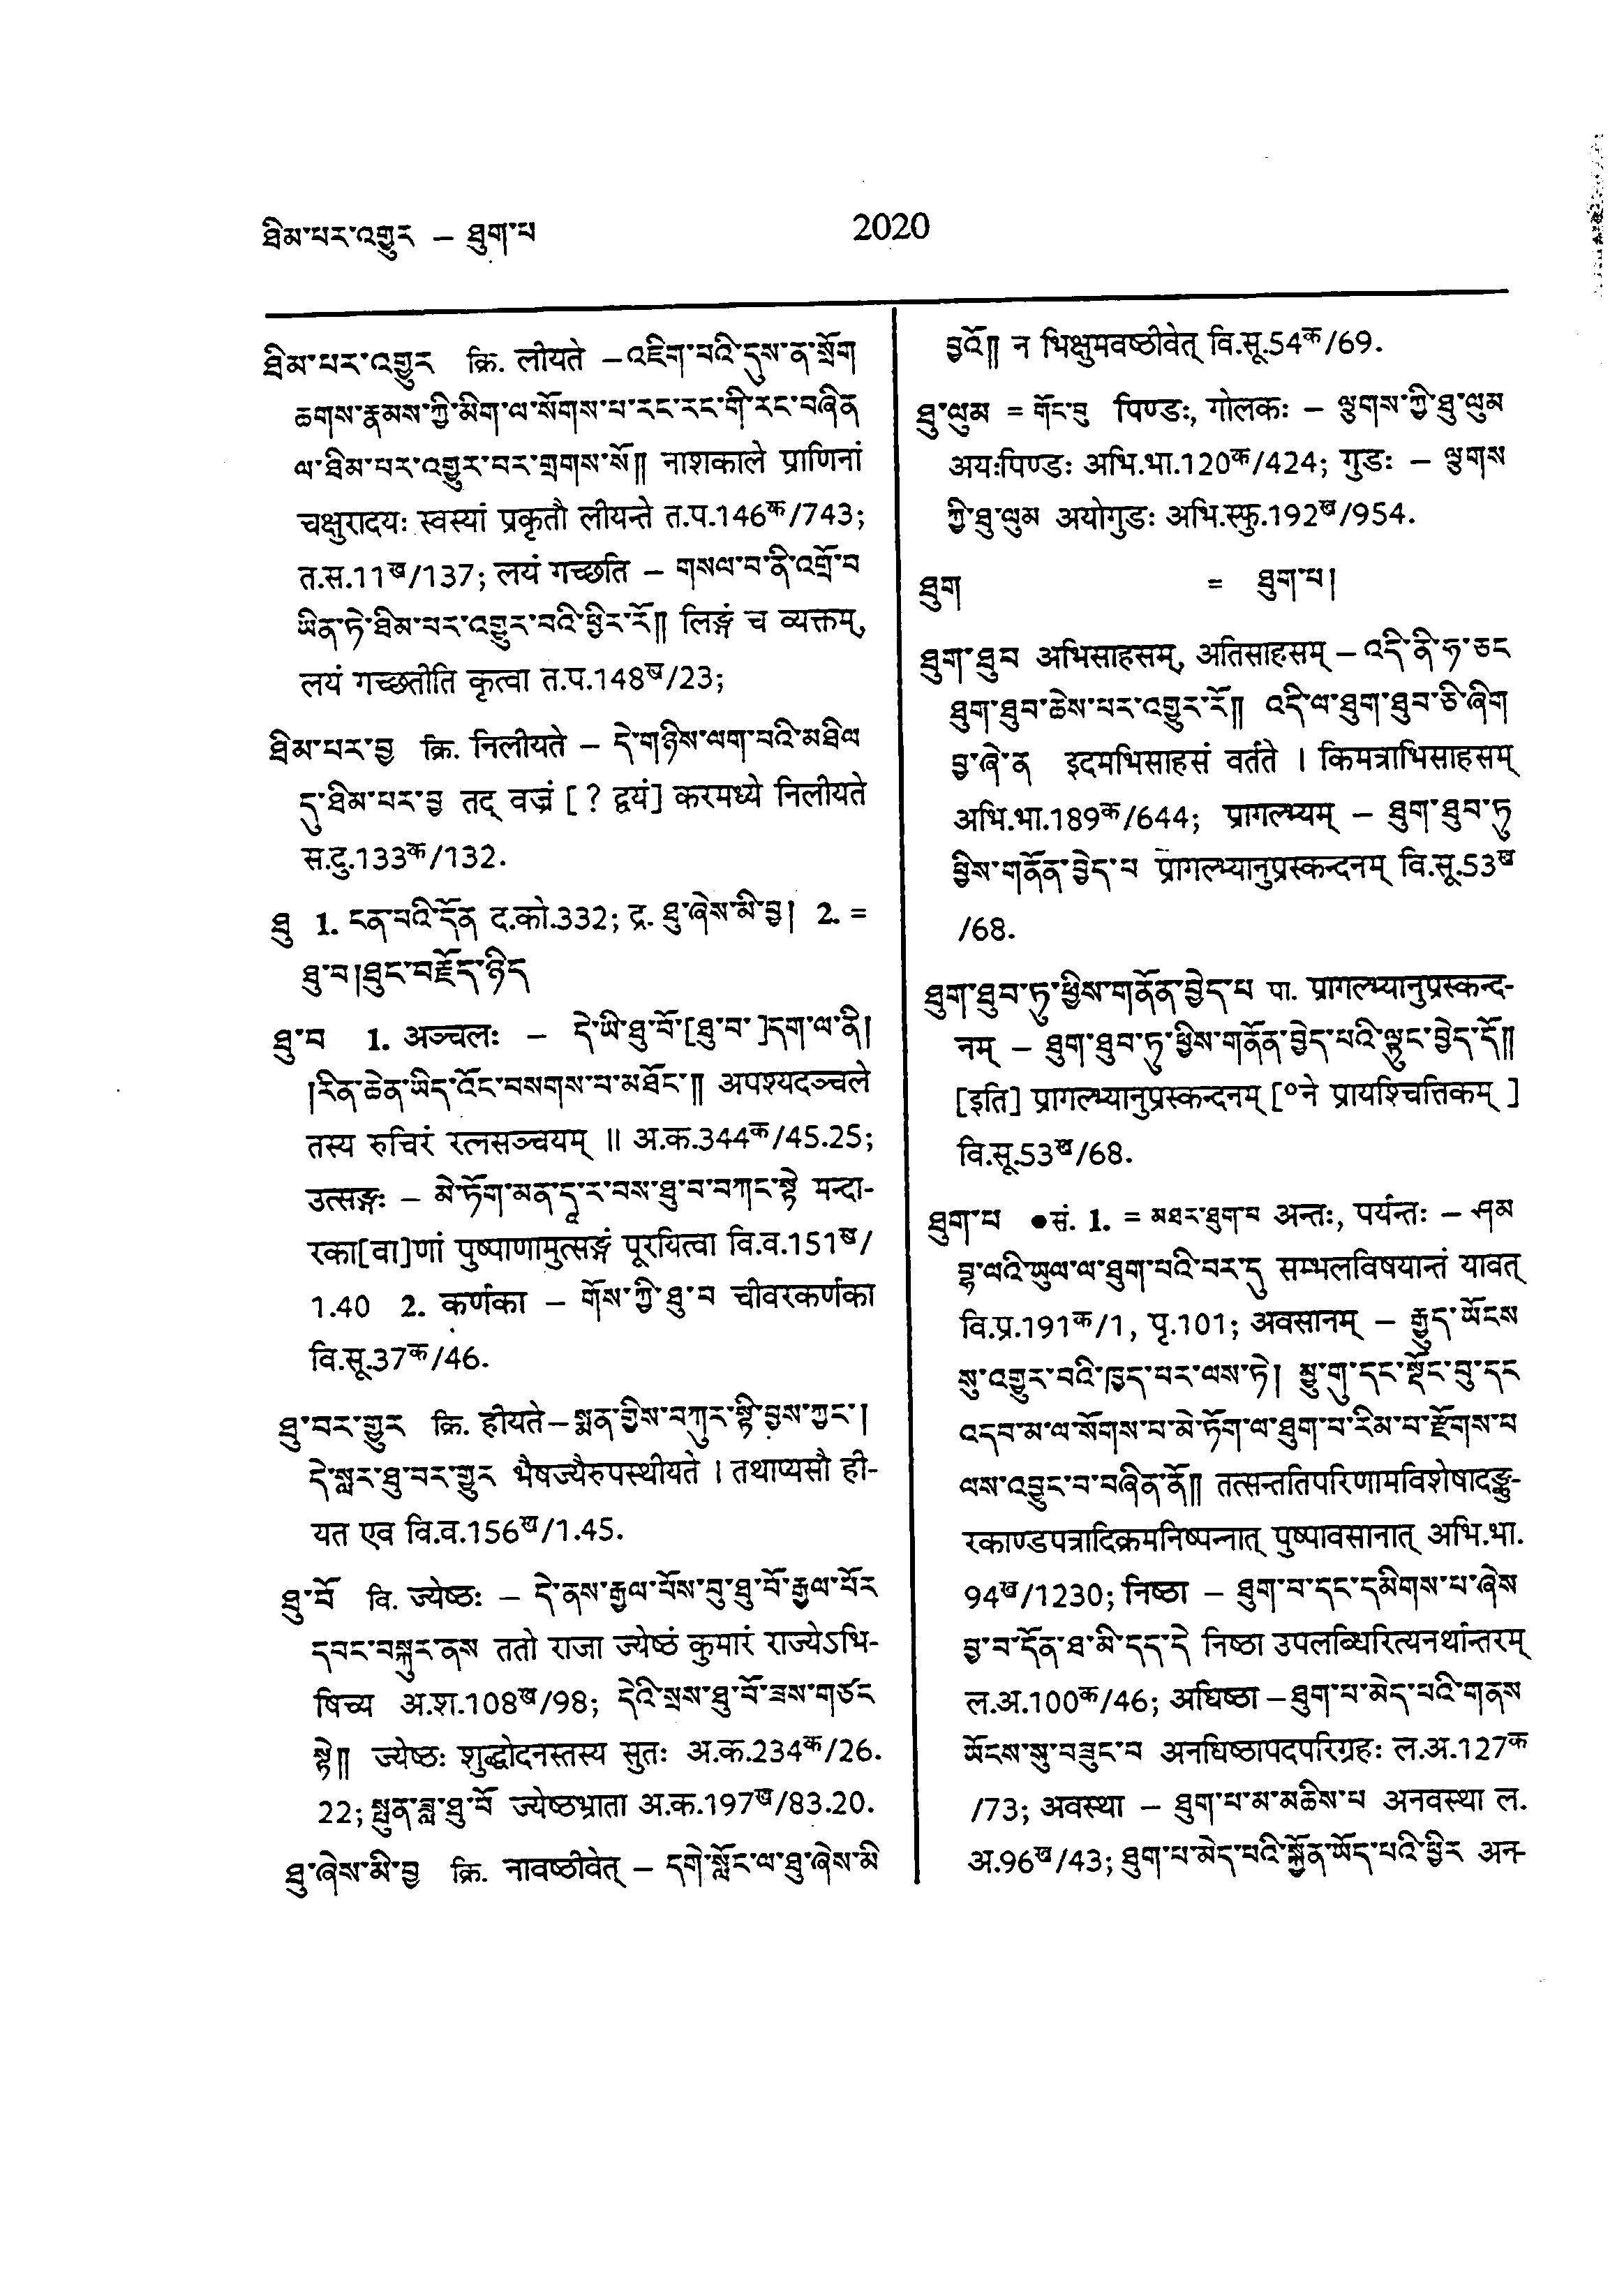 ཐིམ་པར་འགྱུར – ཐུག་པ
2020
ཐིམ་པར་འགྱུར क्रि. लीयते –འཇིག་པའི་དུས་ན་སྲོག
ཆགས་རྣམས་ཀྱི་མིག་ལ་སོགས་པ་རང་རང་གི་རང་བཞིན
ལ་ཐིམ་པར་འགྱུར་བར་གྲགས་སོ༎ नाशकाले प्राणिनां
चक्षुरादयः स्वस्यां प्रकृतौ लीयन्ते त.प.146क/743;
त.स.11ख/137; लयं गच्छति – གསལ་བ་ནི་འགྲོ་བ
ཡིན་ཏེ་ཐིམ་པར་འགྱུར་བའི་ཕྱིར་རོ༎ लिङ्गं च व्यक्तम्,
लयं गच्छतीति कृत्वा त.प.148ख/23;
ཐིམ་པར་བྱ क्रि. निलीयते – དེ་གཉིས་ལག་པའི་མཐིལ
དུ་ཐིམ་པར་བྱ तद् वज्रं [ ? द्वयं] करमध्ये निलीयते
स.दु.133क/132.
ཐུ 1. ངན་པའི་དོན द.को.332; द्र. ཐུ་ཞེས་མི་བྱ། 2. =
ཐུ་བ།ཐུང་བརྗོད་ཉིད
ཐུ་བ 1. अञ्चलः – དེ་ཡི་ཐུ་བོ་[ཐུ་བ་]དག་ལ་ནི།
།རིན་ཆེན་ཡིད་འོང་བསགས་པ་མཐོང་༎ अपश्यदञ्चले
तस्य रुचिरं रत्नसञ्चयम् ॥ अ.क.344क/45.25;
उत्सङ्गः – མེ་ཏོག་མན་དཱ་ར་བས་ཐུ་བ་བཀང་སྟེ मन्दा-
रका[वा]णां पुष्पाणामुत्सङ्गं पूरयित्वा वि.व.151ख/
1.40 2. कर्णका – གོས་ཀྱི་ཐུ་བ चीवरकर्णका
वि.सू.37क/46.
ཐུ་བར་གྱུར क्रि. हीयते–སྨན་གྱིས་བཀུར་སྟི་བྱས་ཀྱང་།
དེ་སླར་ཐུ་བར་གྱུར भैषज्यैरुपस्थीयते । तथाप्यसौ ही-
यत एव वि.व.156ख/1.45.
ཐུ་བོ वि. ज्येष्ठः – དེ་ནས་རྒྱལ་པོས་བུ་ཐུ་བོ་རྒྱལ་པོར
དབང་བསྐུར་ནས ततो राजा ज्येष्ठं कुमारं राज्येऽभि-
षिच्य अ.श.108ख/98; དེའི་སྲས་ཐུ་བོ་ཟས་གཙང
སྟེ༎ ज्येष्ठः शुद्धोदनस्तस्य सुतः अ.क.234क/26.
22; སྤུན་ཟླ་ཐུ་བོ ज्येष्ठभ्राता अ.क.197ख/83.20.
ཐུ་ཞེས་མི་བྱ क्रि. नावष्ठीवेत् – དགེ་སློང་ལ་ཐུ་ཞེས་མི
བྱའོ༎ न भिक्षुमवष्ठीवेत् वि.सू.54क/69.
ཐུ་ལུམ = གོང་བུ पिण्डः, गोलकः – ལྕགས་ཀྱི་ཐུ་ལུམ
अयःपिण्डः अभि.भा.120क/424; गुडः – ལྕགས
ཀྱི་ཐུ་ལུམ अयोगुडः अभि.स्फु.192ख/954.
ཐུག = ཐུག་པ།
ཐུག་ཐུབ अभिसाहसम्, अतिसाहसम् –འདི་ནི་ཧ་ཅང
ཐུག་ཐུབ་ཆེས་པར་འགྱུར་རོ༎ འདི་ལ་ཐུག་ཐུབ་ཅི་ཞིག
བྱ་ཞེ་ན इदमभिसाहसं वर्तते । किमत्राभिसाहसम्
अभि.भा.189क/644; प्रागल्भ्यम् – ཐུག་ཐུབ་ཏུ
ཕྱིས་གནོན་བྱེད་པ प्रागल्भ्यानुप्रस्कन्दनम् वि.सू.53ख
/68.
ཐུག་ཐུབ་ཏུ་ཕྱིས་གནོན་བྱེད་པ पा. प्रागल्भ्यानुप्रस्कन्द-
नम् – ཐུག་ཐུབ་ཏུ་ཕྱིས་གནོན་བྱེད་པའི་ལྟུང་བྱེད་དོ༎
[इति] प्रागल्भ्यानुप्रस्कन्दनम् [°ने प्रायश्चित्तिकम् ]
वि.सू.53ख/68.
ཐུག་པ ●सं. 1. = མཐར་ཐུག་པ अन्तः, पर्यन्तः – ཤམ
བྷ་ལའི་ཡུལ་ལ་ཐུག་པའི་བར་དུ सम्भलविषयान्तं यावत्
वि.प्र.191क/1, पृ.101; अवसानम् – རྒྱུད་ཡོངས
སུ་འགྱུར་བའི་ཁྱད་པར་ལས་ཏེ། མྱུ་གུ་དང་སྡོང་བུ་དང
འདབ་མ་ལ་སོགས་པ་མེ་ཏོག་ལ་ཐུག་པ་རིམ་པ་རྫོགས་པ
ལས་འབྱུང་བ་བཞིན་ནོ༎ तत्सन्ततिपरिणामविशेषादङ्कु-
रकाण्डपत्रादिक्रमनिष्पन्नात् पुष्पावसानात् अभि.भा.
94ख/1230; निष्ठा – ཐུག་པ་དང་དམིགས་པ་ཞེས
བྱ་བ་དོན་ཐ་མི་དད་དེ निष्ठा उपलब्धिरित्यनर्थान्तरम्
ल.अ.100क/46; अधिष्ठा –ཐུག་པ་མེད་པའི་གནས
ཡོངས་སུ་བཟུང་བ अनधिष्ठापदपरिग्रहः ल.अ.127क
/73; अवस्था – ཐུག་པ་མ་མཆིས་པ अनवस्था ल.
अ.96ख/43; ཐུག་པ་མེད་པའི་སྐྱོན་ཡོད་པའི་ཕྱིར अन-